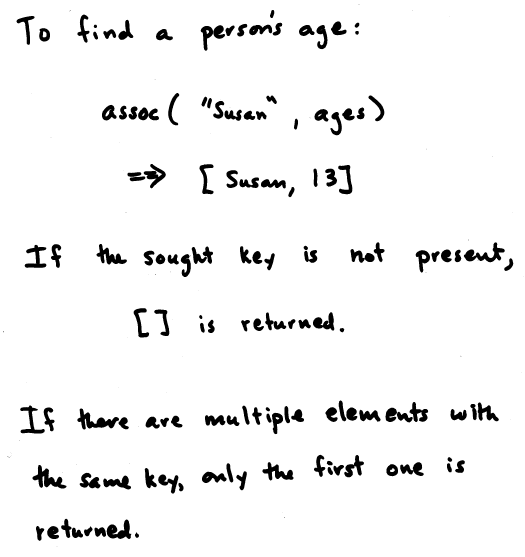 To find a person's age:
assoc( "Susan", ages)
=>> [Susan, 13]
If the sought key is not present,
[] is returned.
If there are multiple elements with
the same key, only the first one is
returned.